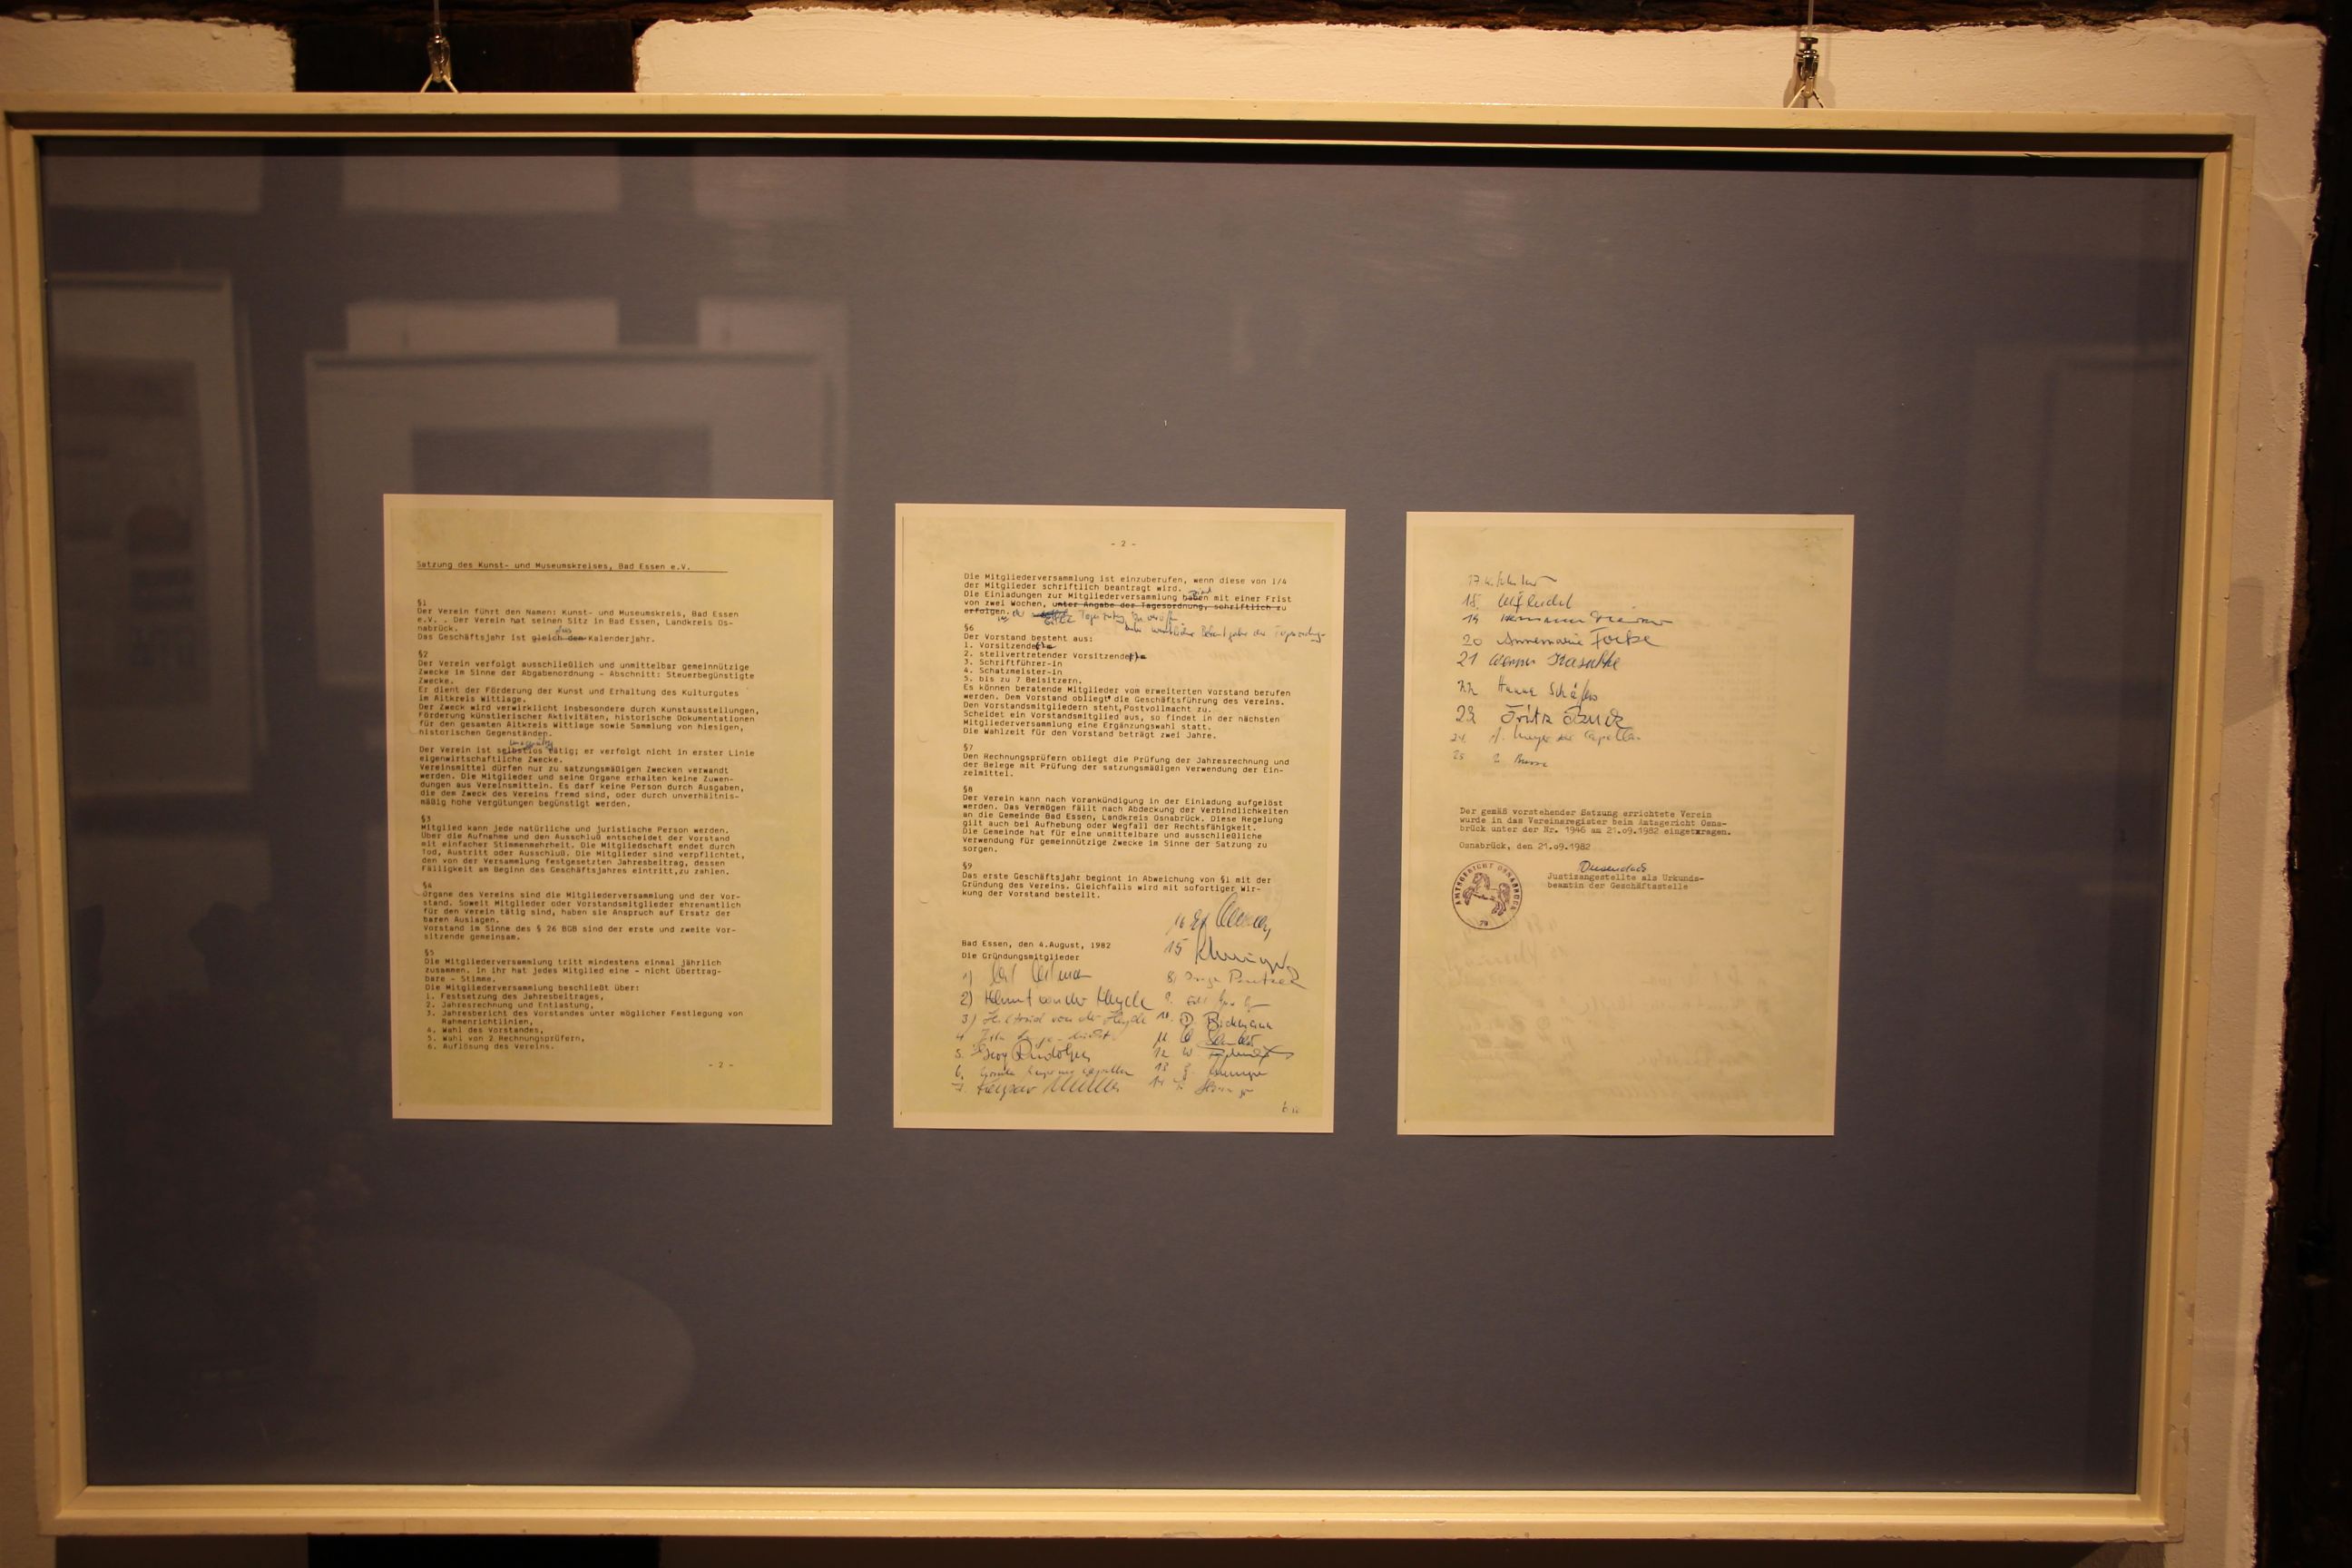 Satzung des Kunst- und Museumskreises, Bad Essen e.V.
§1
Der Verein führt den Namen: Kunst- und Museumskreis, Bad Essen
e.V. . Der Verein hat seinen Sitz in Bad Essen, Landkreis Os-
nabrück.
das
Das Geschäftsjahr ist gleich dem Kalenderjahr.
§2
Der Verein verfolgt ausschließlich und unmittelbar gemeinnützige
Zwecke im Sinne der Abgabenordnung - Abschnitt: Steuerbegünstigte
Zwecke.
Er dient der Förderung der Kunst und Erhaltung des Kulturgutes
im Altkreis Wittlage.
Der Zweck wird verwirklicht insbesondere durch Kunstausstellungen,
Förderung künstlerischer Aktivitäten, historische Dokumentationen
für den gesamten Altkreis Wittlage sowie Sammlung von hiesigen,
historischen Gegenständen.
Der Verein ist selbstlos tätig; er verfolgt nicht in erster Linie
eigenwirtschaftliche Zwecke.
Vereinsmittel dürfen nur zu satzungsmäßigen Zwecken verwandt
werden. Die Mitglieder und seine Organe erhalten keine Zuwen-
dungen aus Vereinsmitteln. Es darf keine Person durch Ausgaben,
die dem Zweck des Vereins fremd sind, oder durch unverhältnis-
mäßig hohe Vergütungen begünstigt werden.
§3
Mitglied kann jede natürliche und juristische Person werden.
Über die Aufnahme und den Ausschluß entscheidet der Vorstand
mit einfacher Stimmenmehrheit. Die Mitgliedschaft endet durch
Tod, Austritt oder Ausschluß. Die Mitglieder sind verpflichtet,
den von der Versammlung festgesetzten Jahresbeitrag, dessen
Fälligkeit am Beginn des Geschäftsjahres eintritt, zu zahlen.
§4
Organe des Vereins sind die Mitgliederversammlung und der Vor-
stand. Soweit Mitglieder oder Vorstandsmitglieder ehrenamtlich
für den Verein tätig sind, haben sie Anspruch auf Ersatz der
baren Auslagen.
Vorstand im Sinne des § 26 BGB sind der erste und zweite Vor-
sitzende gemeinsam.
§5
Die Mitgliederversammlung tritt mindestens einmal jährlich
zusammen. In ihr hat jedes Mitglied eine - nicht übertrag-
bare - Stimme.
Die Mitgliederversammlung beschließt über:
1. Festsetzung des Jahresbeitrages,
2. Jahresrechnung und Entlastung,
3. Jahresbericht des Vorstandes unter möglicher Festlegung von
Rahmenrichtlinien,
4. Wahl des Vorstandes,
5. Wahl von 2 Rechnungsprüfern,
6. Auflösung des Vereins.
- 2 -
- 2 -
Die Mitgliederversammlung ist einzuberufen, wenn diese von 1/4
der Mitglieder schriftlich beantragt wird.
Die Einladungen zur Mitgliederversammlung haben mit einer Frist
von zwei Wochen, unter Angabe der Tagesordnung, schriftlich zu
erfolgen.
§6
Der Vorstand besteht aus:
1. Vorsitzende
2. stellvertretender Vorsitzende
3. Schriftführer-in
4. Schatzmeister-in
5. bis zu 7 Beisitzern.
Es können beratende Mitglieder vom erweiterten Vorstand berufen
werden. Dem Vorstand obliegt die Geschäftsführung des Vereins.
Den Vorstandsmitgliedern steht Postvollmacht zu.
Scheidet ein Vorstandsmitglied aus, so findet in der nächsten
Mitgliederversammlung eine Ergänzungswahl statt.
Die Wahlzeit für den Vorstand beträgt zwei Jahre.
§7
Den Rechnungsprüfern obliegt die Prüfung der Jahresrechnung und
der Belege mit Prüfung der satzungsmäßigen Verwendung der Ein-
zelmittel.
§8
Der Verein kann nach Vorankündigung in der Einladung aufgelöst
werden. Das Vermögen fällt nach Abdeckung der Verbindlichkeiten
an die Gemeinde Bad Essen, Landkreis Osnabrück. Diese Regelung
gilt auch bei Aufhebung oder Wegfall der Rechtsfähigkeit.
Die Gemeinde hat für eine unmittelbare und ausschließliche
Verwendung für gemeinnützige Zwecke im Sinne der Satzung zu
sorgen.
§9
Das erste Geschäftsjahr beginnt in Abweichung von §1 mit der
Gründung des Vereins. Gleichfalls wird mit sofortiger Wir-
kung der Vorstand bestellt.
Bad Essen, den 4.August, 1982
Die Gründungsmitglieder
1)
2) Helmut von der Heyde
3) von der Heyde
4
5. Georg Rudolph
6.
7.
8)
9.
10. Bückmann
11.
12
13
14
15
16
17.
18.
19
20 Annemarie Focke
21 Werner
22 Hanna Schäfer
23
24. Meyer zur Capellen
25
Der gemäß vorstehender Satzung errichtete Verein
wurde in das Vereinsregister beim Amtsgericht Osna-
brück unter der Nr. 1946 am 21.09.1982 eingetragen.
Osnabrück, den 21.09.1982
Justizangestellte als Urkunds-
beamtin der Geschäftsstelle
AMTSGERICHT OSNABRÜCK